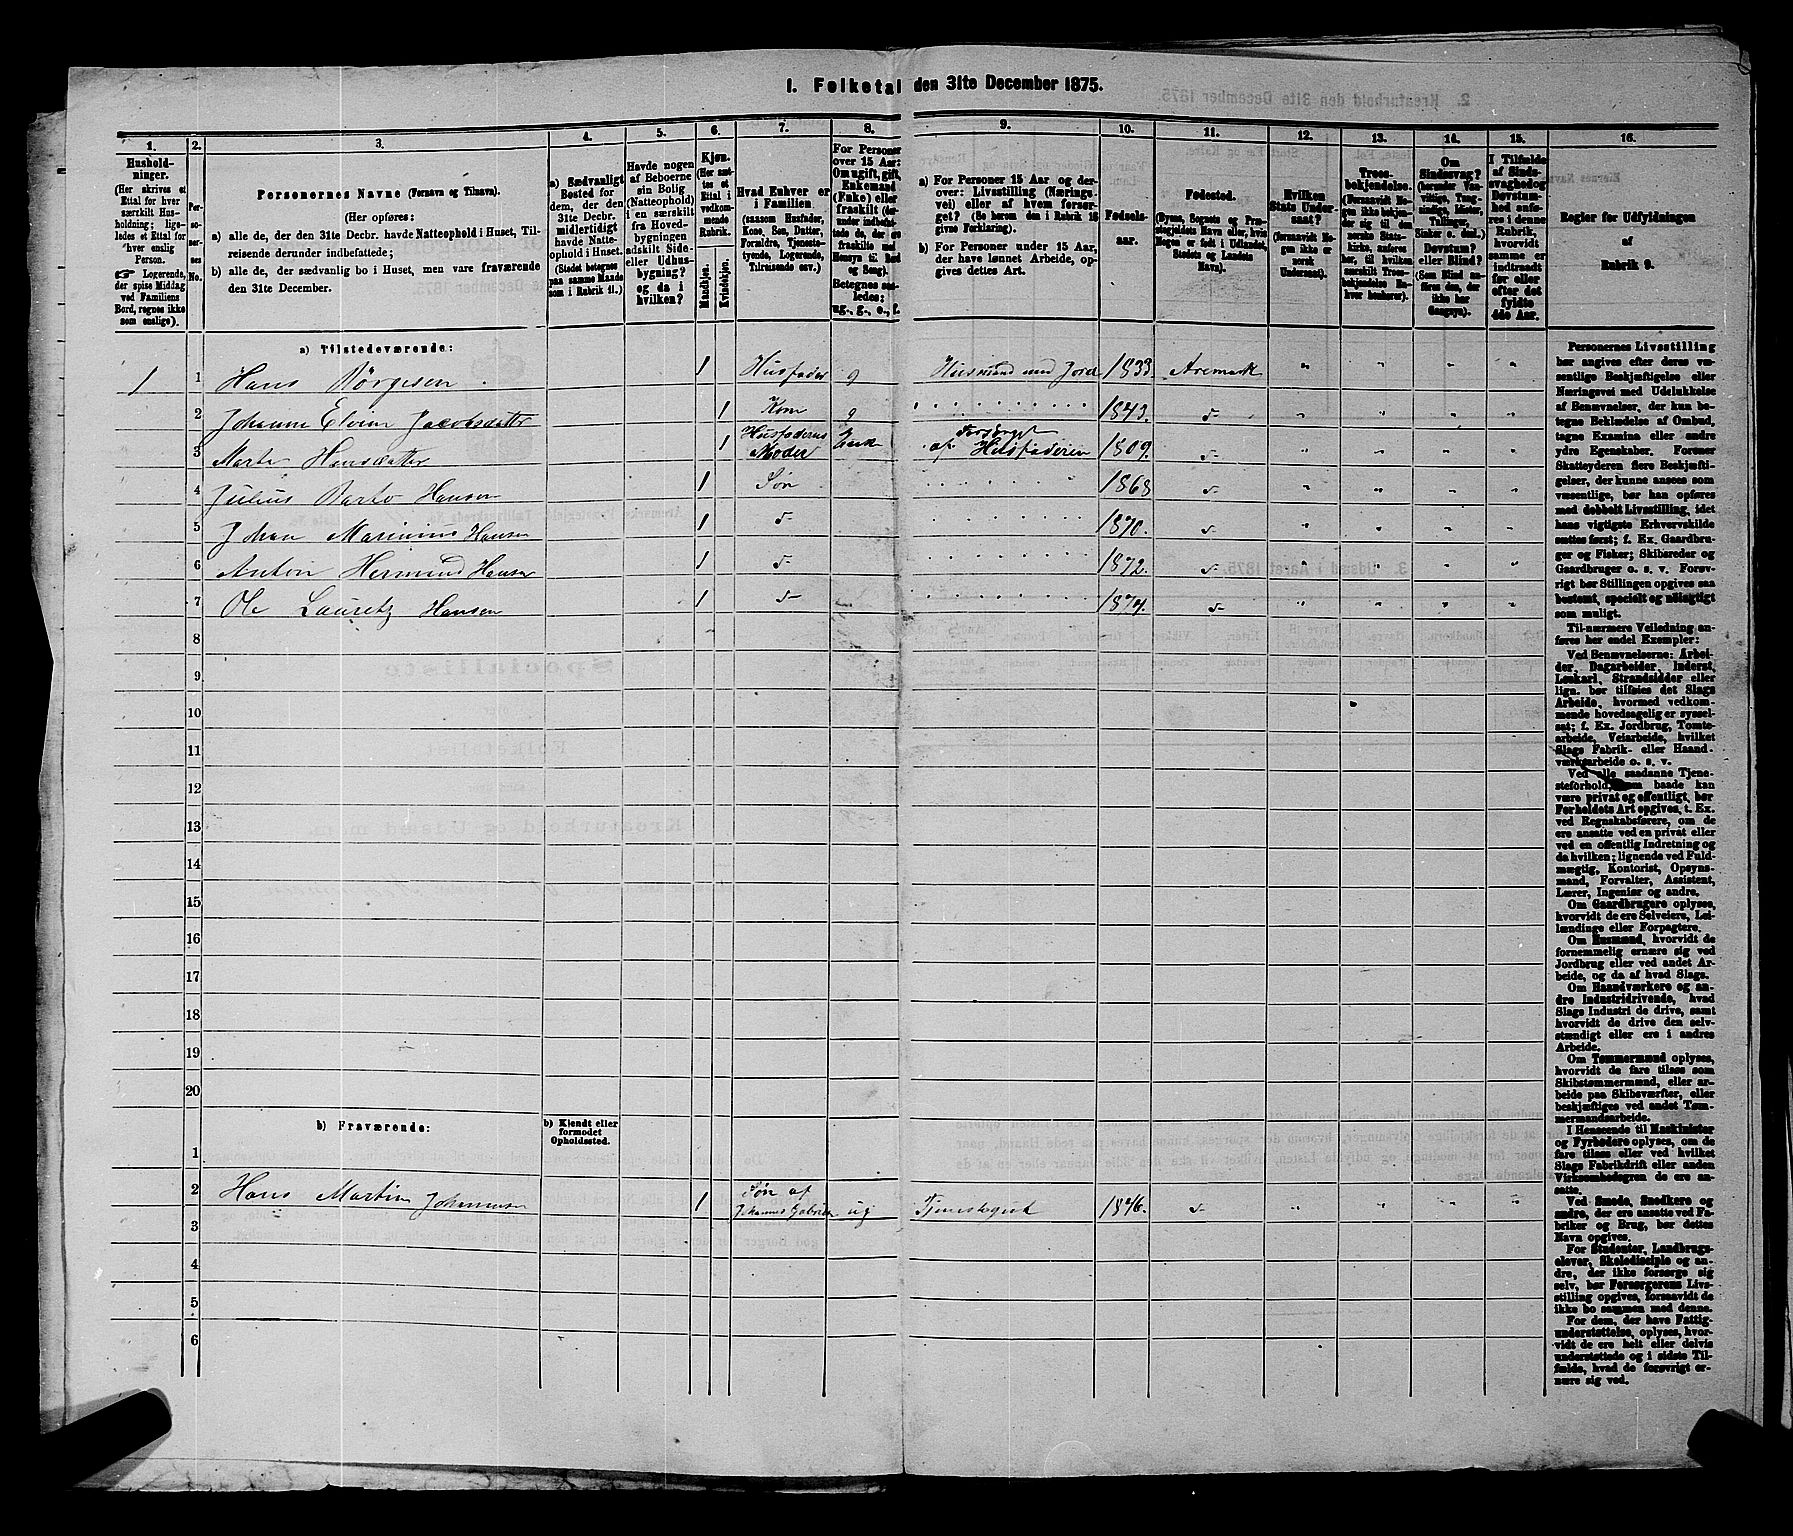 1. Folketal den 31te December 1875.
1.
2.
3.
4.
5.
6.
7.
8.
9.
10.
11.
12.
13.
14.
15.
16.
Hushold-
ninger.
(Her skrives et
Ettal for hver
særskilt Hus-
holdning; lige-
ledes et Ettal for
hver enslig
Person.
Logerende,
der spise Middag
ved Familiens
Bord, regnes ikke
som enslige).
Per-
so-
ner-
nes
No.
Personernes Navne (Fornavn og Tilnavn).
(Her opføres:
a) alle de, der den 31te Decbr. havde Natteophold i Huset, Til-
reisende derunder indbefattede;
b) alle de, der sædvanlig bo i Huset, men vare fraværende
den 31te December.
a) Sædvanligt
Bosted for
dem, der den
31te Decbr.
midlertidigt
havde Natte-
ophold i Huset.
(Stedet betegnes
paa samme Maade
som i Rubrik 11.)
Havde nogen
af Beboerne
sin Bolig
(Natteophold)
i en særskilt
fra Hoved-
bygningen
adskilt Side-
eller Udhus-
bygning?
og da i
hvilken?
Kjøn.
(Her sæt-
tes et
Ettal i
vedkom-
mende
Rubrik.
Mandkjøn.
Kvindekjøn.
Hvad Enhver er
i Familien
(saasom Husfader,
Kone, Søn, Datter,
Forældre, Tjeneste-
tyende, Logerende,
Tilreisende osv.)
For Personer
over 15 Aar:
Om ugift, gift,
Enkemand
(Enke) eller
fraskilt (her-
under indbefat-
tede de, der ere
fraskilte med
Hensyn til Bord
og Seng).
Betegnes saa-
ledes:
ug., g., e., f.
a) For Personer 15 Aar og der-
over: Livsstilling (Nærings-
vei) eller af hvem forsør-
get? (Se herom den i Rubrik 16
givne Forklaring).
b) For Personer under 15 Aar,
der have lønnet Arbeide, op-
gives dettes Art.
Fødsels-
aar.
Fødested.
(Byens, Sognets og Præ-
stegjeldets Navn eller, hvis
Nogen er født i Udlandet,
Stedets og Landets
Navn).
Hvilken
Stats Under-
saat?
(forsaavidt No-
gen ikke er
norsk
Undersaat).
Troes-
bekjendelse.
(Forsaavidt No-
gen ikke bekjen-
der sig til den
norske Stats-
kirke, anføres
her, til hvilken
særskilt Troes-
bekjendelse En-
hver henhører).
Om
Sindssvag?
(herunder Van-
vittige, Tung-
sindige, Idioter,
Tullinger,
Sinker o. desl.)
Døvstum?
eller Blind?
(Som Blind an-
føres den, der
ikke har
Gangsyn).
I Tilfælde
af Sinds-
svaghed og
Døvstum-
hed anfø-
res i denne
Rubrik,
hvorvidt
samme er
indtraadt
før eller
efter det
fyldte
4de Aar.
Regler for Udfyldningen
af
Rubrik 9.
a) Tilstedeværende:
1 1 Hans Børgesen 1 Husfader g Husmand med Jord 1833. Aremark " " " "
2 Johanne Elvine Jacobsdatter 1 Kone g 1843. d- " " " "
3 Marte Hansdatter 1 Husfaderens Moder Enke Forsørget af Husfaderen 1809. d- " " " "
4 Julius Barto Hansen 1 Søn 1868 d- " " " "
5 Johan Marinius Hansen 1 d- 1870. d- " " " "
6 Anton Hermund Hansen 1 d- 1872. d- " " " "
7 Ole Lauretz Hansen 1 d- 1874. d- " " " "
8
9
10
11
12
13
14
15
16
17
18
19
20
b) Fraværende:
b) Kjendt eller
formodet
Opholdssted.
1
2 Hans Martin Johannesen 1 Søn af Johannes Gabrielsen ug Tjenestegut 1846. d- " " " "
3
4
5
6
Personernes Livsstilling
bør angives efter deres væ-
sentlige Beskjæftigelse eller
Næringsvei med Udelukkelse
af Benævnelser, der kun be-
tegne Beklædelse af Ombud,
tagne Examina eller andre
ydre Egenskaber. Forener
Skatteyderen flere Beskjæfti-
gelser, der kunne ansees som
væsentlige, bør han opføres
med dobbelt Livsstilling, idet
hans vigtigste Erhvervskilde
sættes først; f. Ex. Gaardbru-
ger og Fisker; Skibsreder og
Gaardbruger o. s. v. Forøv-
rigt bør Stillingen opgives saa
bestemt, specielt og nøiagtigt
som muligt.
Til nærmere Veiledning an-
føres her endel Exempler:
Ved Benævnelserne: Arbei-
der, Dagarbeider, Inderst,
Løskarl, Strandsidder eller
lign. bør tilføies det Slags
Arbeide, hvormed vedkom-
mende hovedsagelig er syssel-
sat; f. Ex. Jordbrug, Tomte-
arbeide, Veiarbeide, hvilket
Slags Fabrik- eller Haand-
værksarbeide o. s. v.
Ved alle saadanne Tjene-
steforhold, som baade kan
være privat og offentligt, bør
Forholdets Art opgives, t. Ex.
ved Regnskabsførere, om de
ere ansatte ved en privat eller
ved en offentlig Indretning og
da hvilken; lignende ved Fuld-
mægtig, Kontorist, Opsyns-
mand, Forvalter, Assistent,
Lærer, Ingeniør og andre.
Om Gaardbrugere oplyses,
hvorvidt de ere Selveiere, Lei-
lændinge eller Forpagtere.
Om Husmænd, hvorvidt de
fornemmelig ernære sig ved
Jordbrug eller ved andet Ar-
beide, og da af hvad Slags.
Om Haandværkere og an-
dre Industridrivende, hvad
Slags Industri de drive, samt
hvorvidt de drive den selv-
stændigt eller ere i andres
Arbeide.
Om Tømmermænd oplyses,
hvorvidt de fare tilsøs som
Skibstømmermænd, eller ar-
beide paa Skibsværfter, eller
beskjæftiges ved andet Tøm-
mermandsarbeide.
I Henseende til Maskinister
og Fyrbødere oplyses, om de
fare tilsøs eller ved hvilket
Slags Fabrikdrift eller anden
Virksomhedsgren de ere an-
satte.
Ved Smede, Snedkere og
andre, der ere ansatte ved Fa-
briker og Brug, bør dettes
Navn opgives.
For Studenter, Landbrugs-
elever, Skoledisciple og an-
dre, der ikke forsørge sig
selv, bør Forsørgerens Livs-
stilling opgives, forsaavidt de
ikke bo sammen med denne.
For dem, der have Fattig-
understøttelse, oplyses, hvor-
vidt de ere helt eller delvis
understøttede og i sidste Til-
fælde, hvad de forøvrigt er-
nære sig ved.